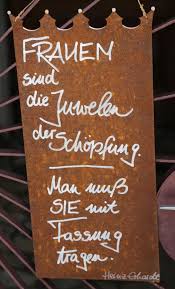 FRAUEN
sind
die Juwelen
der Schöpfung.
Man muß
SIE mit
Fassung
tragen.
Heinz Erhardt